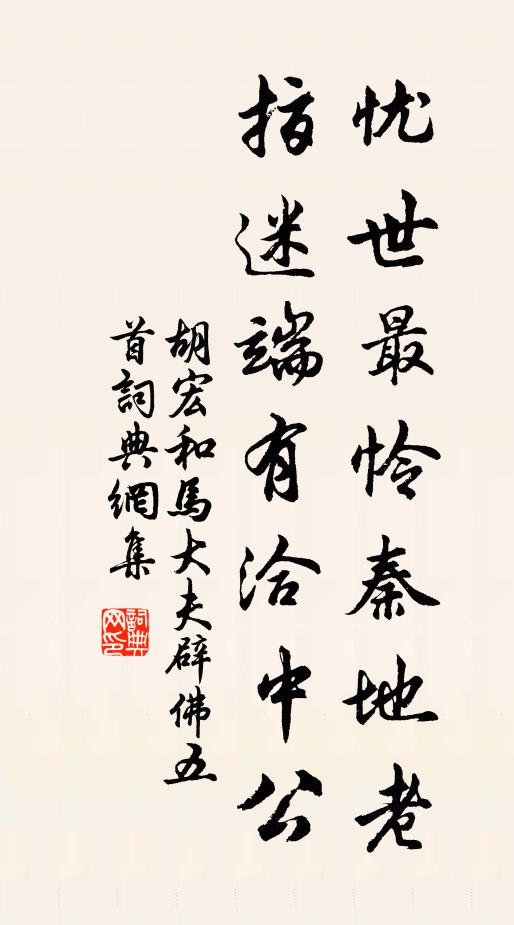 忧世最怜秦地老
指迷端有洽中公
胡宏和馬大夫辟佛五
首詞典網集
詞典
网印